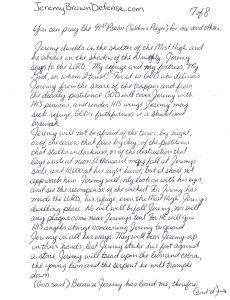 JeremyBrownDefense.com
7 of 8
You can pray the 91st Psalm (Soldiers Prayer) for me and others.
Jeremy dwells in the shelter of the Most High and
he abides in the shadow of the Almighty. Jeremy
says to the LORD, "My refuge and my fortress, My
God, in whom I trust!" For it is GOD who delivers
Jeremy from the snare of the trapper and from
the deadly pestilence. GOD will cover Jeremy with
HIS pinions, and under HIS wings Jeremy may
seek refuge, GOD's faithfulness is a shield and
bulwark.
Jeremy will not be afraid of the terror by night,
or of the arrow that flies by day; of the pestilence
that stalks in darkness, or of the destruction that
lays waste at noon. A thousand may fall at Jeremy's
side, and 10,000 at his right hand, but it shall not
approach him. Jeremy will only look on with his eyes,
and see the recompense of the wicked. For Jeremy has
made the LORD, his refuge, even the Most High, Jeremy's
dwelling place. No evil will befall Jeremy, nor will
any plague come near Jeremy's tent. For HE will give
HIS angels charge concerning Jeremy to guard
Jeremy in all his ways. They will bear Jeremy up
in their hands, lest Jeremy strike his foot against
a stone. Jeremy will tread upon the lion and cobra,
the young lion and the serpent he will trample
down.
(God said) Because Jeremy has loved me, therefore
(cont'd)